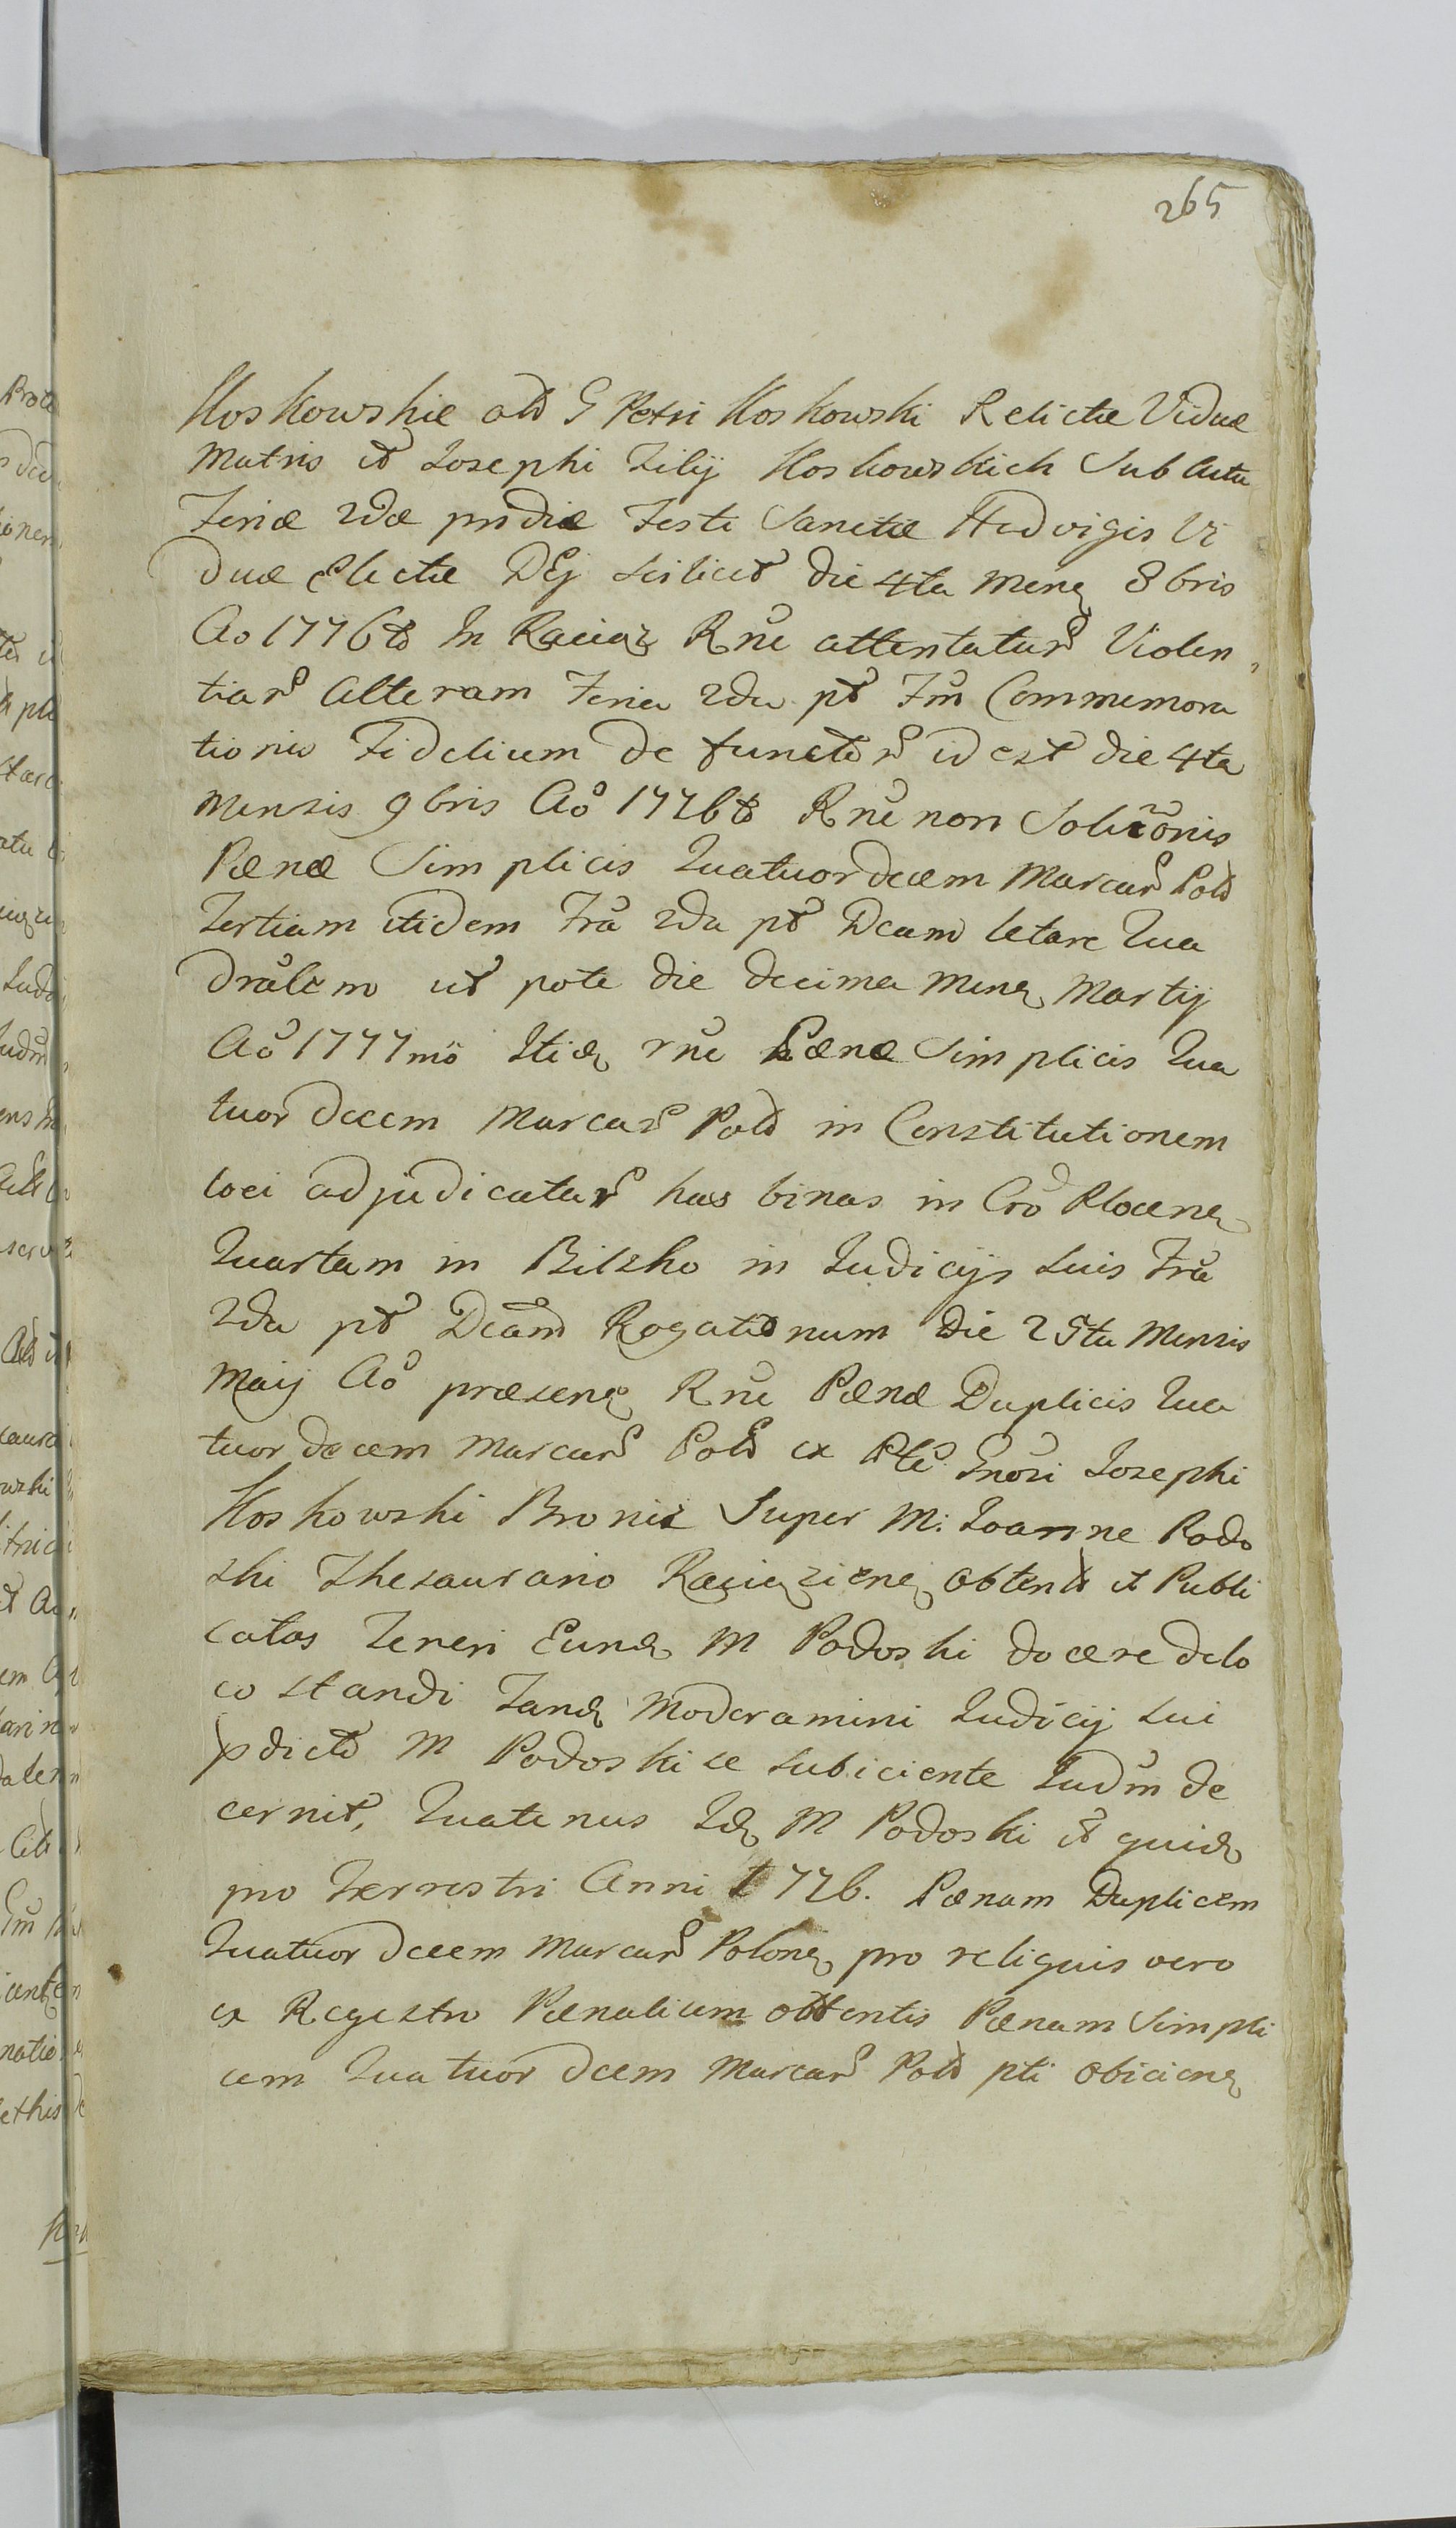 265
Koskowskie old G Petri Koskowski Relictæ Viduæ
Matris et Josephi Filij Koskowskich Sub Actu
Feriæ 2dæ pridie Festi Sanctæ Hedvigis Vi
duæ Electæ Dej scilicet die 4ta Mens 8bris
Ao 1776to In Raciąz Rne attentatar Violen
tiar Alteram Feria 2da pt Fm Commemora
tionis Fidelium de functor id est die 4ta
Mensis 9bris Ao 1776to Rne non Solutionis
Pænæ Simplicis Quatuordecem Marcar Pold
Tertiam itidem Fra 2da pt Dcam letare Qua
dralem ut pote die decima Mens Martij
Ao 1777mo Itid rne Pænæ Simplicis Qua
tuor decem Marcar Pold in Constitutionem
loci adjudicatar has binas in Cro Plocens
Quartam in Bilsko in Judicijs suis Fra
2da pt Dcam Rogationum die 25ta Mensis
Maij Ao præsens Rne Pænæ Duplicis Qua
tuor decem Marcar Pold ex Pte Gnosi Josephi
Koskowski Bronis Super M: Joanne Podo
ski Thesaurario Raciąziens obtent et Publi
catas Teneri Eund M Podoski docere delo
co standi Tand Moderamini Judicij sui
pdicto M Podoski se subiciente Judm de
cernit, Quatenus Id M Podoski et quid
pro Terrestri Anni 1776. Pænam Duplicem
Quatuor decem Marcar Polon pro reliquis vero
ex Regestro Pænalium obtentis Pænam Simpli
cem Quatuor dcem Marcar Pold pti obiciens